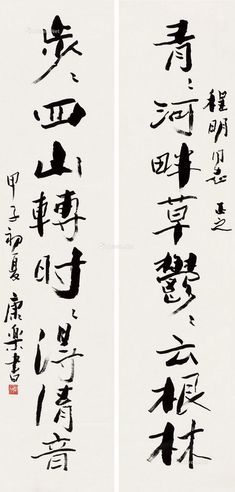 程明同志 正之
青〻河畔草鬱〻云根林
步〻四山轉时〻得清音
甲子初夏 康樂書